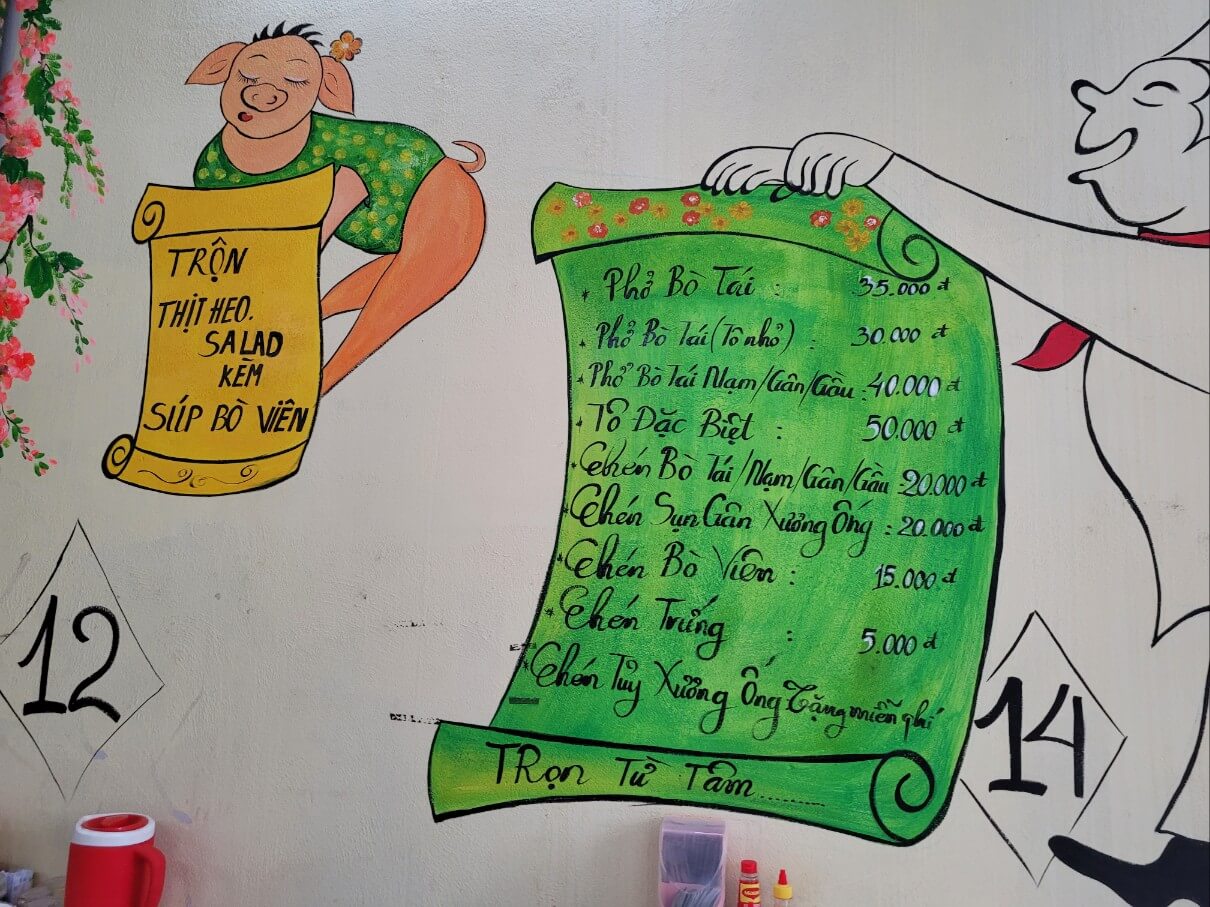 TRỘN
THỊT HEO.
SALAD
KÈM
SÚP BÒ VIÊN
* Phở Bò Tái : 35.000 đ
* Phở Bò Tái (Tô nhỏ) : 30.000 đ
* Phở Bò Tái Nạm/Gân/Gầu : 40.000 đ
* Tô Đặc Biệt : 50.000 đ
* Chén Bò Tái/Nạm/Gân/Gầu : 20.000 đ
* Chén Sụn Gân Xương Ống : 20.000 đ
* Chén Bò Viên : 15.000 đ
* Chén Trứng : 5.000 đ
* Chén Tủy Xương Ống Tặng miễn phí
TRọn Từ Tâm..........
12
14